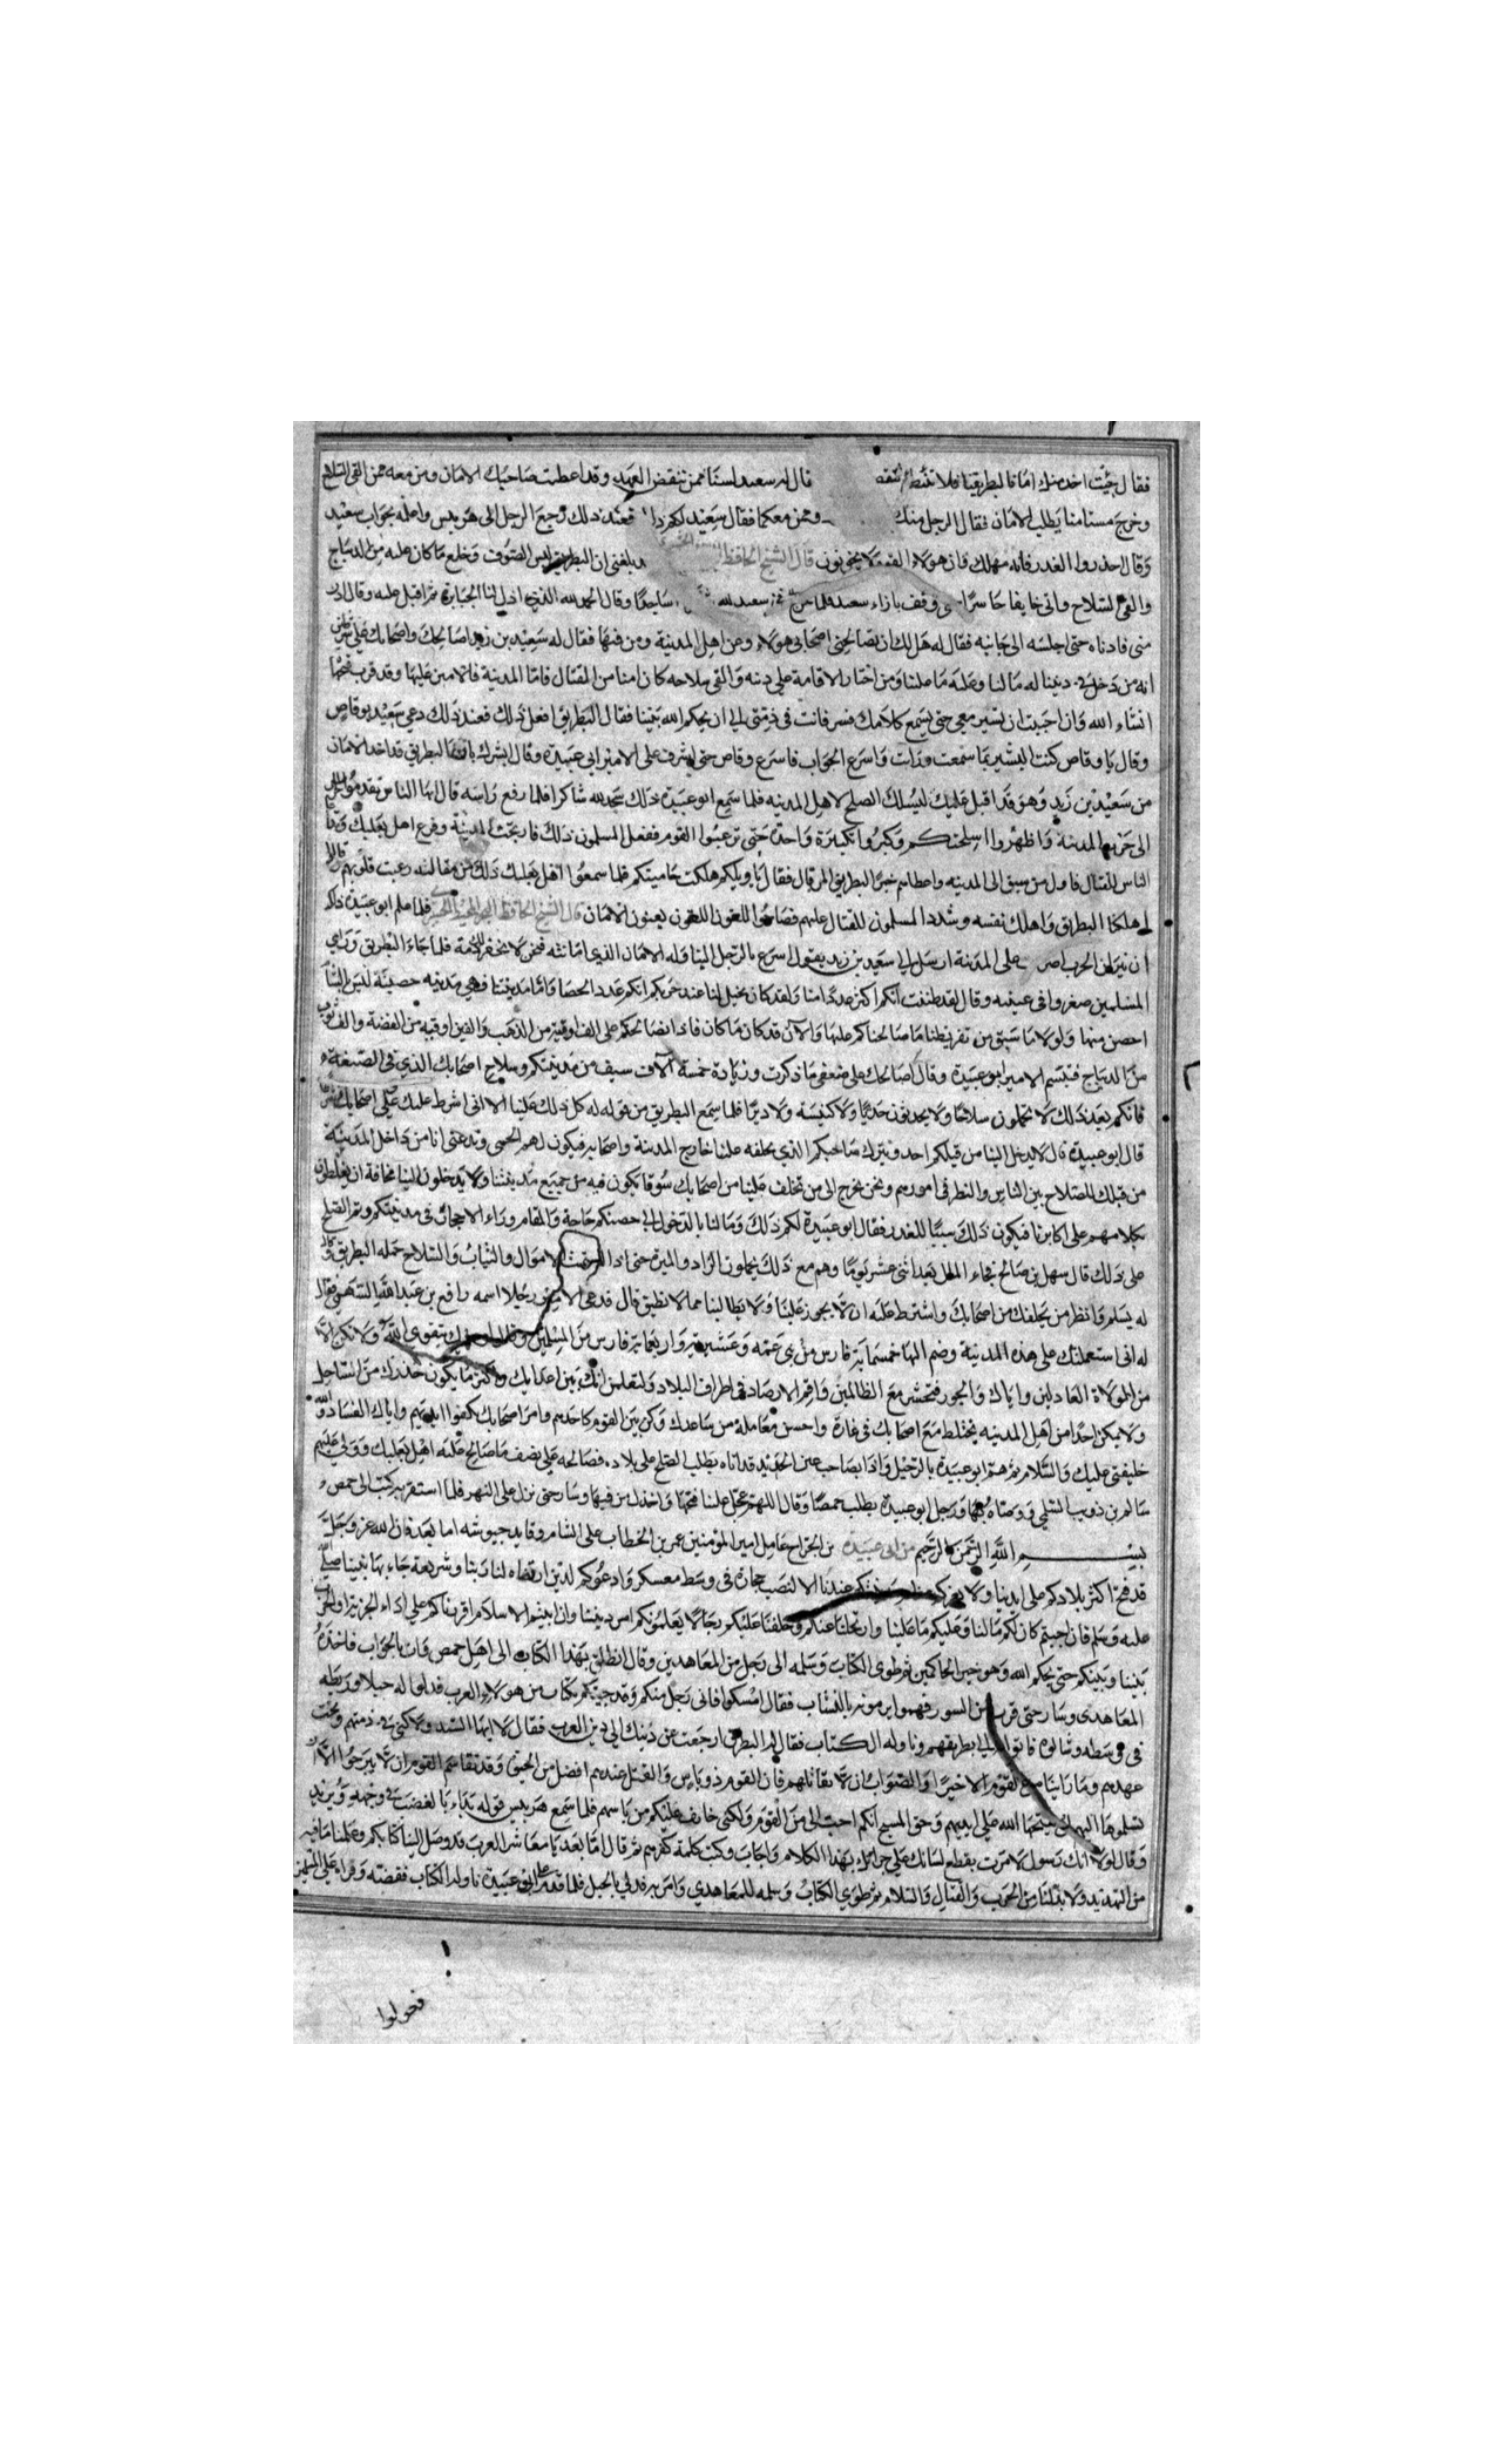 فقال جئت اخذ منك امانا لبطريقنا فلا تنتقض قال له سعيد لسنا ممن ننقض العهد وقد اعطيت صاحبك الامان ومن معه ممن القى السلاح
وخرج مستامنا يطلب الامان فقال الرجل منك ومن معكما فقال سعيد لكم ذا فعند ذلك رجع الرجل الى هربيس واعلمه بجواب سعيد
وقال احذروا الغدر فانه مهلك فان هولاء القوم لا يخونون قال الشيخ الحافظ بلغني ان البطريق لبس الصوف وخلع ما كان عليه من الديباج
والقى السلاح واتى خايفا حاسرا حتى وقف بازاء سعيد فلما سعيد لله ساجدا وقال الحمد لله الذي اذل لنا الجبابرة ثم اقبل عليه وقال ادن
مني فادناه حتى اجلسه الى جانبه فقال له هل لك ان تصالحني اصحابي هولاء وعن اهل المدينة ومن فيها فقال له سعيد بن زيد اصالحك واصحابك على
انه من دخل في ديننا له ما لنا وعليه ما علينا ومن اختار الاقامة على دينه والقى سلاحه كان امنا من القتال فاما المدينة فالامير عليها وقد قرب فتحها
انشاء الله وان احببت ان تسير معي حتى يسمع كلامك فسر فانت في ذمتي الي ان يحكم الله بيننا فقال البطريق افعل ذلك فعند ذلك دعي سعيد بوقاص
وقال يا وقاص كنت البشير بما سمعت ورات واسرع الجواب فاسرع وقاص حتى اشرف على الامير ابي عبيدة وقال ابشرك بان البطريق قد اخذ الامان
من سعيد بن زيد وهو قد اقبل عليك ليسلك الصلح لاهل المدينه فلما سمع ابو عبيدة ذلك سجد لله شاكرا فلما رفع راسه قال ايها الناس تقدموا
الى حرب المدينة واظهروا اسلحتكم وكبروا تكبيرة واحدة حتى ترعبوا القوم ففعل المسلمون ذلك فارتجت المدينة وفزع اهل بعلبك
الناس للقتال فاول من سبق الى المدينه واعطاهم خبر البطريق المرقال فقال يا ويلكم هلكت حاميتكم فلما سمعوا اهل بعلبك ذلك من مقالته رعبت قلوبهم
هلكنا البطريق واهلك نفسه وشددا المسلمون للقتال عليهم فصاحوا اللغون اللغون يعنون الامان قال الشيخ الحافظ فلما علم ابو عبيدة ذلك
ان نيران الحرب على المدينة ارسل الي سعيد بن زيد يقول اسرع بالرجل الينا وله الامان الذي امانته فنحن لا نخفر لك ذمة فلما جاء البطريق وراي
المسلمين صغروا في عينيه وقال لقد ظننت انكم اكثر عددا منا ولقد كان يخيل لنا عند حربكم انكم عدد الحصا واما مدينتنا فهي مدينه حصينة ليس بالشام
احصن منها ولولا ما سبق من تفريطنا ما صالحناكم عليها والان قد كان ما كان فاذا نصالحكم على الف اوقية من الذهب والفين اوقيه من الفضة والف ثوب
من الديباج فتبسم الامير ابو عبيدة وقال اصالحك على ضعفي ما ذكرت وزيادة خمسة آلاف سيف من مدينتكم وسلاح اصحابك الذي في الضيعة
فانكم بعد ذلك لا تحملون سلاحا ولا يحدثون حدثا ولا كنيسة ولا ديرا فلما سمع البطريق من قوله له كل ذلك علينا الا اني اشرط عليك علي اصحابك
قال ابو عبيدة قال لا يدخل الينا من قبلكم احد ونترك صاحبكم الذي يخلفه علنا خارج المدينة واصحابه فيكون لهم الحمى وتدعني انا من داخل المدينة
من قبلك للصلاح بين الناس والنظر في امورهم ونحن نخرج الى من تخلف علينا من اصحابك سوقا يكون فيه من جميع مدينتنا ولا يدخلون الينا مخافة ان يغلظوا
بكلامهم على اكابرنا فيكون ذلك سببا للغدر فقال ابو عبيدة لكم ذلك وما لنا بالدخول الي حصنكم حاجة والمقام وراء الاحجار في مدينتكم وتم الصلح
على ذلك قال سهل بن صالح فجاء المال بعد اثنى عشر يوما وهم مع ذلك يحملون الزاد والميرة حتى اذا استتمت الاموال والثياب والسلاح حمله البطريق
له يسلم وانظر من يخلفك من اصحابك واشترط عليه ان لا يجوز علينا ولا يطالبنا مما لا نطيق قال فدعى الامير رجلا اسمه رافع بن عبد الله السهمي فقال
له اني استعملتك على هذه المدينة وضم اليها خمسماية فارس من بني عمه وعشيرته واربعماية فارس من المسلمين وقال اوصيك بتقوى الله ولا تكن الا
من الولاة العادلين واياك والجور فتحشر مع الظالمين واقم الارصاد في اطراف البلاد ولتعلمن انك بين اعدايك واكثر ما يكون حذرك من الساحل
ولا يمكن احدا من اهل المدينه يختلط مع اصحابك في غارة واحسن معاملة من ساعدك وكن بين القوم كاحدهم وامر اصحابك كفوا ايديهم واياك الفساد والله
خليفتي عليك والسلام ثم هم ابو عبيدة بالرحيل واذا بصاحب عين الحديد قد اتاه يطلب الصلح على بلاده فصالحه علي نصف ما صالح عليه اهل بعلبك وولى عليهم
سالم بن ذويب السلمي ووصاه ورحل ابو عبيدة يطلب حمصا وقال اللهم عجل علينا فتحها واخذل من فيها وسار حتى نزل على النهر فلما استقر به كتب الى حمص
بسم الله الرحمن الرحيم من ابي عبيدة بن الجراح عامل امير المومنين عمر بن الخطاب على الشام وقايد جيوشه اما بعد فان الله عز وجل
قد فتح اكثر بلادكم على ايدينا ولا يغركم عندنا الا لنصب حجارة في وسط معسكر وادعوكم لدين ارتضاه لنا ربنا وشريعة جاء بها نبينا صلى
عليه وسلم فان اجبتم كان لكم ما لنا وعليكم ما علينا وارتحلنا عنكم وخلفنا عليكم رجالا يعلمونكم امر ديننا وان ابيتم الاسلام اقررناكم علي اداء الجزية
بيننا وبينكم حتى يحكم الله وهو خير الحاكمين ثم طوى الكتاب وسلمه الى رجل من المعاهدين وقال انطلق بهذا الكتاب الى اهل حمص وات بالجواب فاخذه
المعاهدى وسار حتى قرب من السور فهموا يرمونه بالنشاب فقال امسكوا فاني رجل منكم وقد جيتكم بكتاب من هولاء العرب فدلوا له حبلا وربطه
في وسطه وشالوه فاتوا الي بطريقهم وناوله الكتاب فقال له البطريق ارجعت عن دينك الي دين العرب فقال لا ايها السيد ولا كني في ذمتهم وتحت
عهدهم وما راينا من القوم الا خيرا والصواب ان لا نقاتلهم فان القوم ذو باس والقتل عندهم افضل من الحيوة وقد تقاسم القوم ان لا يبرحوا الا
تسلموها اليهم او يفتحها الله علي ايديهم وحق المسيح انكم احب الى من القوم ولكني خايف عليكم من باسهم فلما سمع هربيس قوله بداء بالغضب في وجهه ويزبد
وقال لولا انك رسول لامرت بقطع لسانك علي جراتك بهذا الكلام واجاب وكتب كلمة كفرهم ثم قال اما بعد يا معاشر العرب قد وصل الينا كتابكم وعلمنا ما فيه
من التهديد ولا بد لنا من الحرب والقتال والسلام ثم طوي الكتاب وسلمه للمعاهدي وامر به فدلي بالحبل فلما قدم على ابي عبيدة ناوله الكتاب ففضه وقراه علي المسلمين
فحولوا